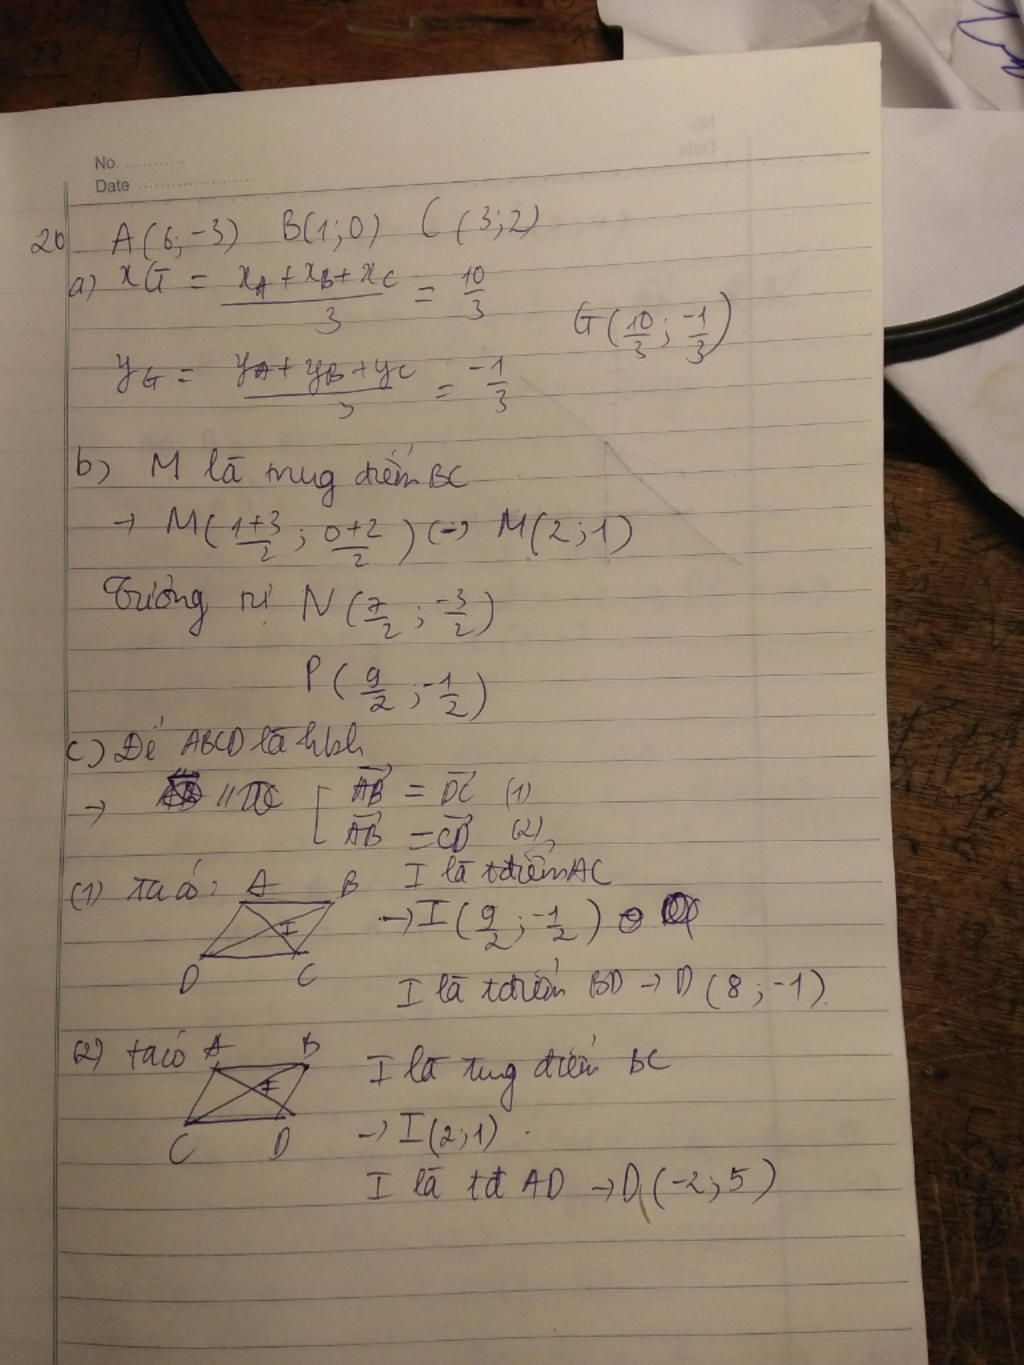 No.
Date
20 A(6;-3) B(1;0) C(3;2)
a) xG = xA + xB + xC / 3 = 10/3
G(10/3; -1/3)
yG = yA + yB + yC / 3 = -1/3
b) M là trug điểm BC
→ M(1+3/2; 0+2/2) (→ M(2;1)
Tương tự N(7/2; -3/2)
P(9/2; -1/2)
c) Để ABCD là hbh
→ // DC [ AB = DC (1)
AB = CD (2)
(1) ta có: A B I là tđiểm AC
→ I(9/2; -1/2)
I
D C
I là tđiểm BD → D(8;-1).
(2) ta có A B I là trug điểm BC
I
C D → I(2;1).
I là tđ AD → D(-2;5)